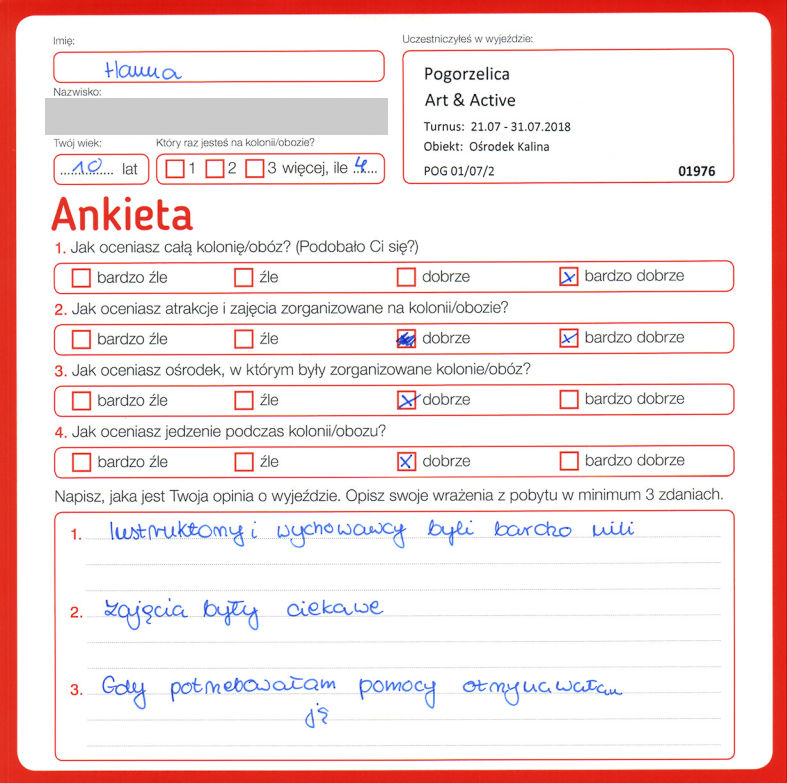 Imię:
Hanna
Nazwisko:
Twój wiek:
10 lat
Który raz jesteś na kolonii/obozie?
1 2 3 więcej, ile 4
Uczestniczyłeś w wyjeździe:
Pogorzelica
Art & Active
Turnus: 21.07 - 31.07.2018
Obiekt: Ośrodek Kalina
POG 01/07/2 01976
Ankieta
1. Jak oceniasz całą kolonię/obóz? (Podobało Ci się?)
bardzo źle źle dobrze bardzo dobrze
2. Jak oceniasz atrakcje i zajęcia zorganizowane na kolonii/obozie?
bardzo źle źle dobrze bardzo dobrze
3. Jak oceniasz ośrodek, w którym były zorganizowane kolonie/obóz?
bardzo źle źle dobrze bardzo dobrze
4. Jak oceniasz jedzenie podczas kolonii/obozu?
bardzo źle źle dobrze bardzo dobrze
Napisz, jaka jest Twoja opinia o wyjeździe. Opisz swoje wrażenia z pobytu w minimum 3 zdaniach.
1. Instruktorzy i wychowawcy byli bardzo mili
2. zajęcia były ciekawe
3. Gdy potrzebowałam pomocy otrzymawałam
ją